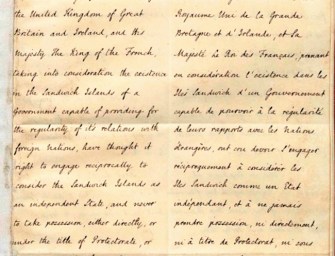 the United Kingdom of Great
Britain and Ireland, and His
Majesty The King of the French,
taking into consideration the existence
in the Sandwich Islands of a
Government capable of providing for
the regularity of its relations with
foreign Nations, have thought it
right to engage reciprocally to
consider the Sandwich Islands as
an independent State, and never
to take possession, either directly, or
under the title of Protectorate, or
Royaume Uni de la Grande
Bretagne et d'Irlande, et Sa
Majesté Le Roi des Français, prenant
en considération l'existence dans les
Iles Sandwich d'un Gouvernement
capable de pourvoir à la régularité
de leurs rapports avec les Nations
étrangères, ont cru devoir s'engager
réciproquement à considérer les
Iles Sandwich comme un Etat
indépendant, et à ne jamais
prendre possession, ni directement,
ni à titre de Protectorat, ni sous